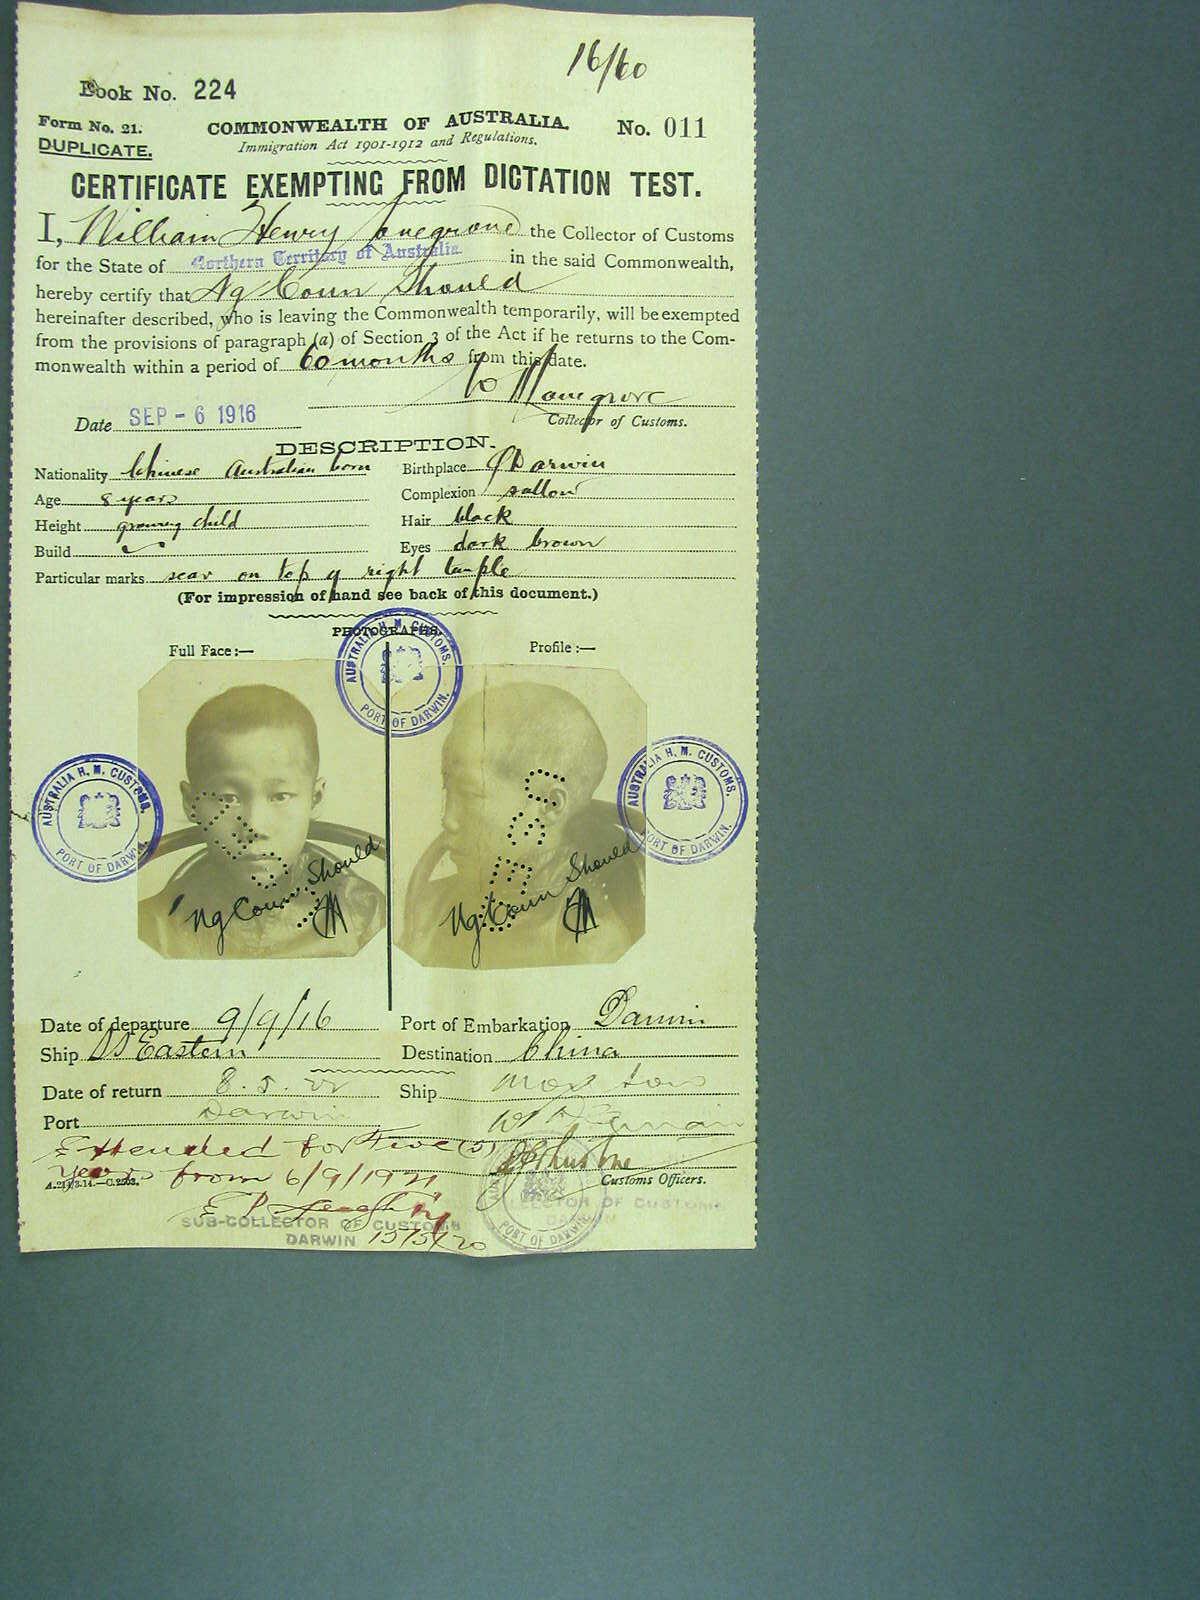 16/60
Book No. 224
Form No. 21.
COMMONWEALTH OF AUSTRALIA.
No. 011
DUPLICATE.
Immigration Act 1901-1912 and Regulations.
CERTIFICATE EXEMPTING FROM DICTATION TEST.
I, William Henry the Collector of Customs
for the State of Northern Territory of Australia in the said Commonwealth,
hereby certify that Ng Coun Should
hereinafter described, who is leaving the Commonwealth temporarily, will be exempted
from the provisions of paragraph (a) of Section 3 of the Act if he returns to the Com-
monwealth within a period of 60 months from this date.
Date SEP - 6 1916
Collector of Customs.
DESCRIPTION.
Nationality Chinese Australian born
Birthplace Darwin
Age 8 years
Complexion sallow
Height growing child
Hair black
Build
Eyes dark brown
Particular marks scar on top of right temple
(For impression of hand see back of this document.)
PHOTOGRAPHS.
Full Face :—
Profile :—
AUSTRALIA H. M. CUSTOMS. PORT OF DARWIN.
AUSTRALIA H. M. CUSTOMS. PORT OF DARWIN.
AUSTRALIA H. M. CUSTOMS. PORT OF DARWIN.
Ng Coun Should
Ng Coun Should
Date of departure 9/9/16
Port of Embarkation Darwin
Ship SS Eastern
Destination China
Date of return 8.5.22
Ship
Port Darwin
Extended for Five (5)
years from 6/9/1921
A.214/3.14.—C.2503.
Customs Officers.
SUB-COLLECTOR OF CUSTOMS
DARWIN 13/5/20
COLLECTOR OF CUSTOMS
DARWIN
PORT OF DARWIN.